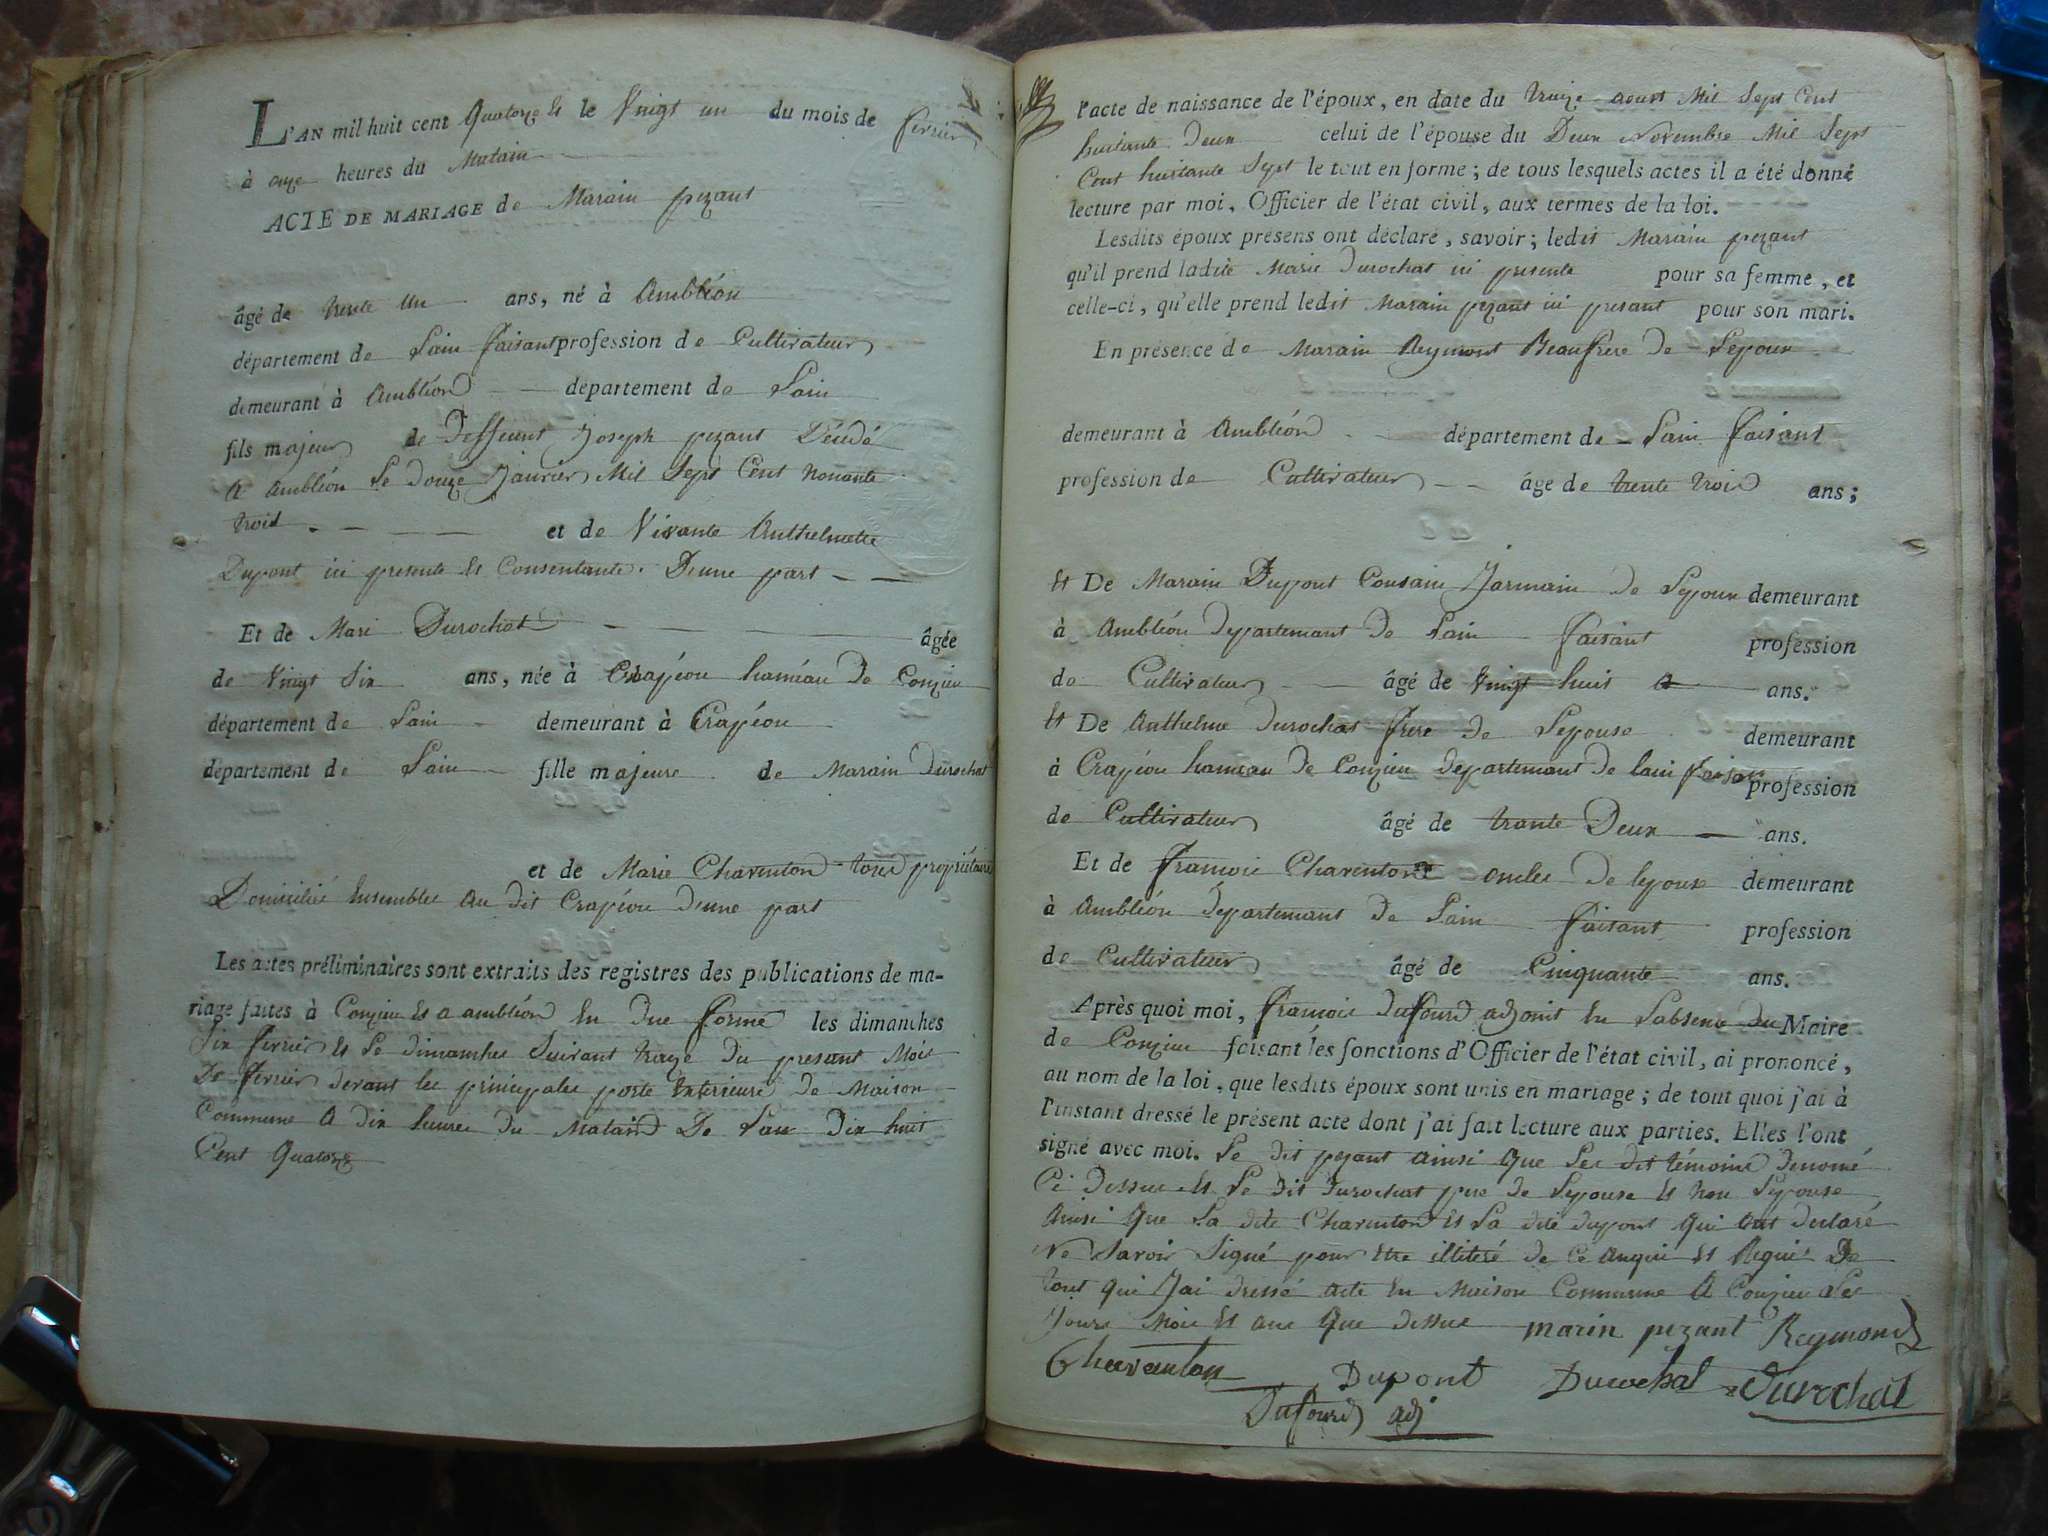 L'AN mil huit cent Quatorze Et le Vingt un du mois de fevrier
à onze heures du Matain
ACTE DE MARIAGE de Marain pezant
âgé de trente un ans, né à Ambléon
département de Lain faisant profession de Cultivateur
demeurant à Ambléon département de Lain
fils majeur de Deffeunt Joseph pezant Décédé
A Ambléon Le douze Janvier Mil Sept Cent nonante
trois et de Vivante Anthelmette
Dupont ici presente Et Consentante. D'une part
Et de Mari Durochat âgée
de Vingt Six ans, née à Crapéou haméau de Conzieu
département de Lain demeurant à Crapéou
département de Lain fille majeure de Marain Durochat
et de Marie Charenton tous propriétaire
Domicilié Ensembles Au dit Crapéou d'une part
Les actes préliminaires sont extraits des registres des publications de ma-
riage faites à Conzieu Et a ambléon En due forme les dimanches
Six fevrier Et Le dimanches Suivant traze du presant Mois
De fevrier devant les principales porte Exterieure de Maison
Commune A dix heures du Mataind De Lan dix huit
Cent Quatorze
l'acte de naissance de l'époux, en date du traize aoust Mil Sept Cent
huitante Deux celui de l'épouse du Deux Novembre Mil Sept
Cent huitante Sept le tout en forme; de tous lesquels actes il a été donné
lecture par moi, Officier de l'état civil, aux termes de la loi.
Lesdits époux présens ont déclaré, savoir; ledit Marain pezant
qu'il prend ladite Marie Durochat ici presente pour sa femme, et
celle-ci, qu'elle prend ledit Marain pezant ici presant pour son mari.
En présence de Marain Reymont Beaufrere de Lepoux
demeurant à Ambléon département de Lain faisant
profession de Cultivateur âge de trente trois ans;
Et De Marain Dupont Cousain Jarmain de Lepoux demeurant
à Ambléon departemant De Lain faisant profession
de Cultivateur âgé de Vingt huit ans.
Et De Anthelme Durochat frere de Lepouse demeurant
à Crapéou hameau De Conzieu departemant De lain faisan profession
de Cultivateur âgé de trante Deux ans.
Et de francois Charenton oncles De lepoux demeurant
à Ambléon departemant De Lain faisant profession
de Cultivateur âgé de Cinquante ans.
Après quoi moi, francois dufourd adjoint En Labsence du Maire
de Conzieu faisant les fonctions d'Officier de l'état civil, ai prononcé,
au nom de la loi, que lesdits époux sont unis en mariage; de tout quoi j'ai à
l'instant dressé le présent acte dont j'ai fait lecture aux parties. Elles l'ont
signé avec moi. Le dit pezant ainsi Que Les dit témoins denomé
Ci dessus Et Le dit durochat pere de Lepouse Et non Lepouse
Ainsi Que La dite Charenton Et La dite dupont Qui ont declaré
Ne Savoir Signé pour Etre illiteré de Ce Enquis Et Requis De
tout qui J'ai dressé acte En Maison Commune A Conzieu Les
Jours Mois Et ans Que dessus marin pezant Reymond
Charanton Dupont Durochat Durochat
Dufourd adj